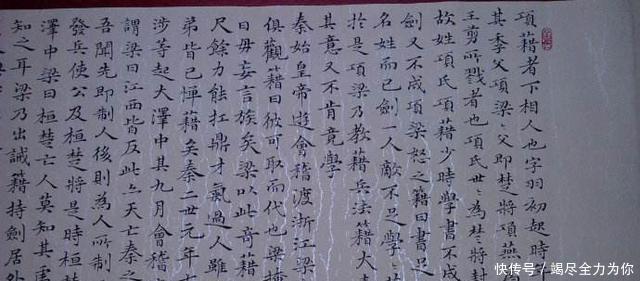 項藉者下相人也字羽初起時年
其季父項梁〻父即楚將項燕
王剪所戮者也項氏世〻為楚將封
故姓項氏項藉少時學書不成
劍又不成項梁怒之藉曰書足
名姓而已劍一人敵不足學〻
於是項梁乃教藉兵法藉大
其意又不肯竟學
秦始皇帝遊會稽渡浙江梁
俱觀藉曰彼可取而代也梁掩
曰毋妄言族矣梁以此奇藉
尺餘力能扛鼎才氣過人雖
弟皆已憚藉矣秦二世元年
涉等起大澤中其九月會稽
謂梁曰江西皆反此亦天亡秦之
吾聞先即制人後則為人所制
發兵使公及桓楚將是時桓
澤中梁曰桓楚亡人莫知其處
知之耳梁乃出誡籍持劍居外
快传号/竭尽全力为你